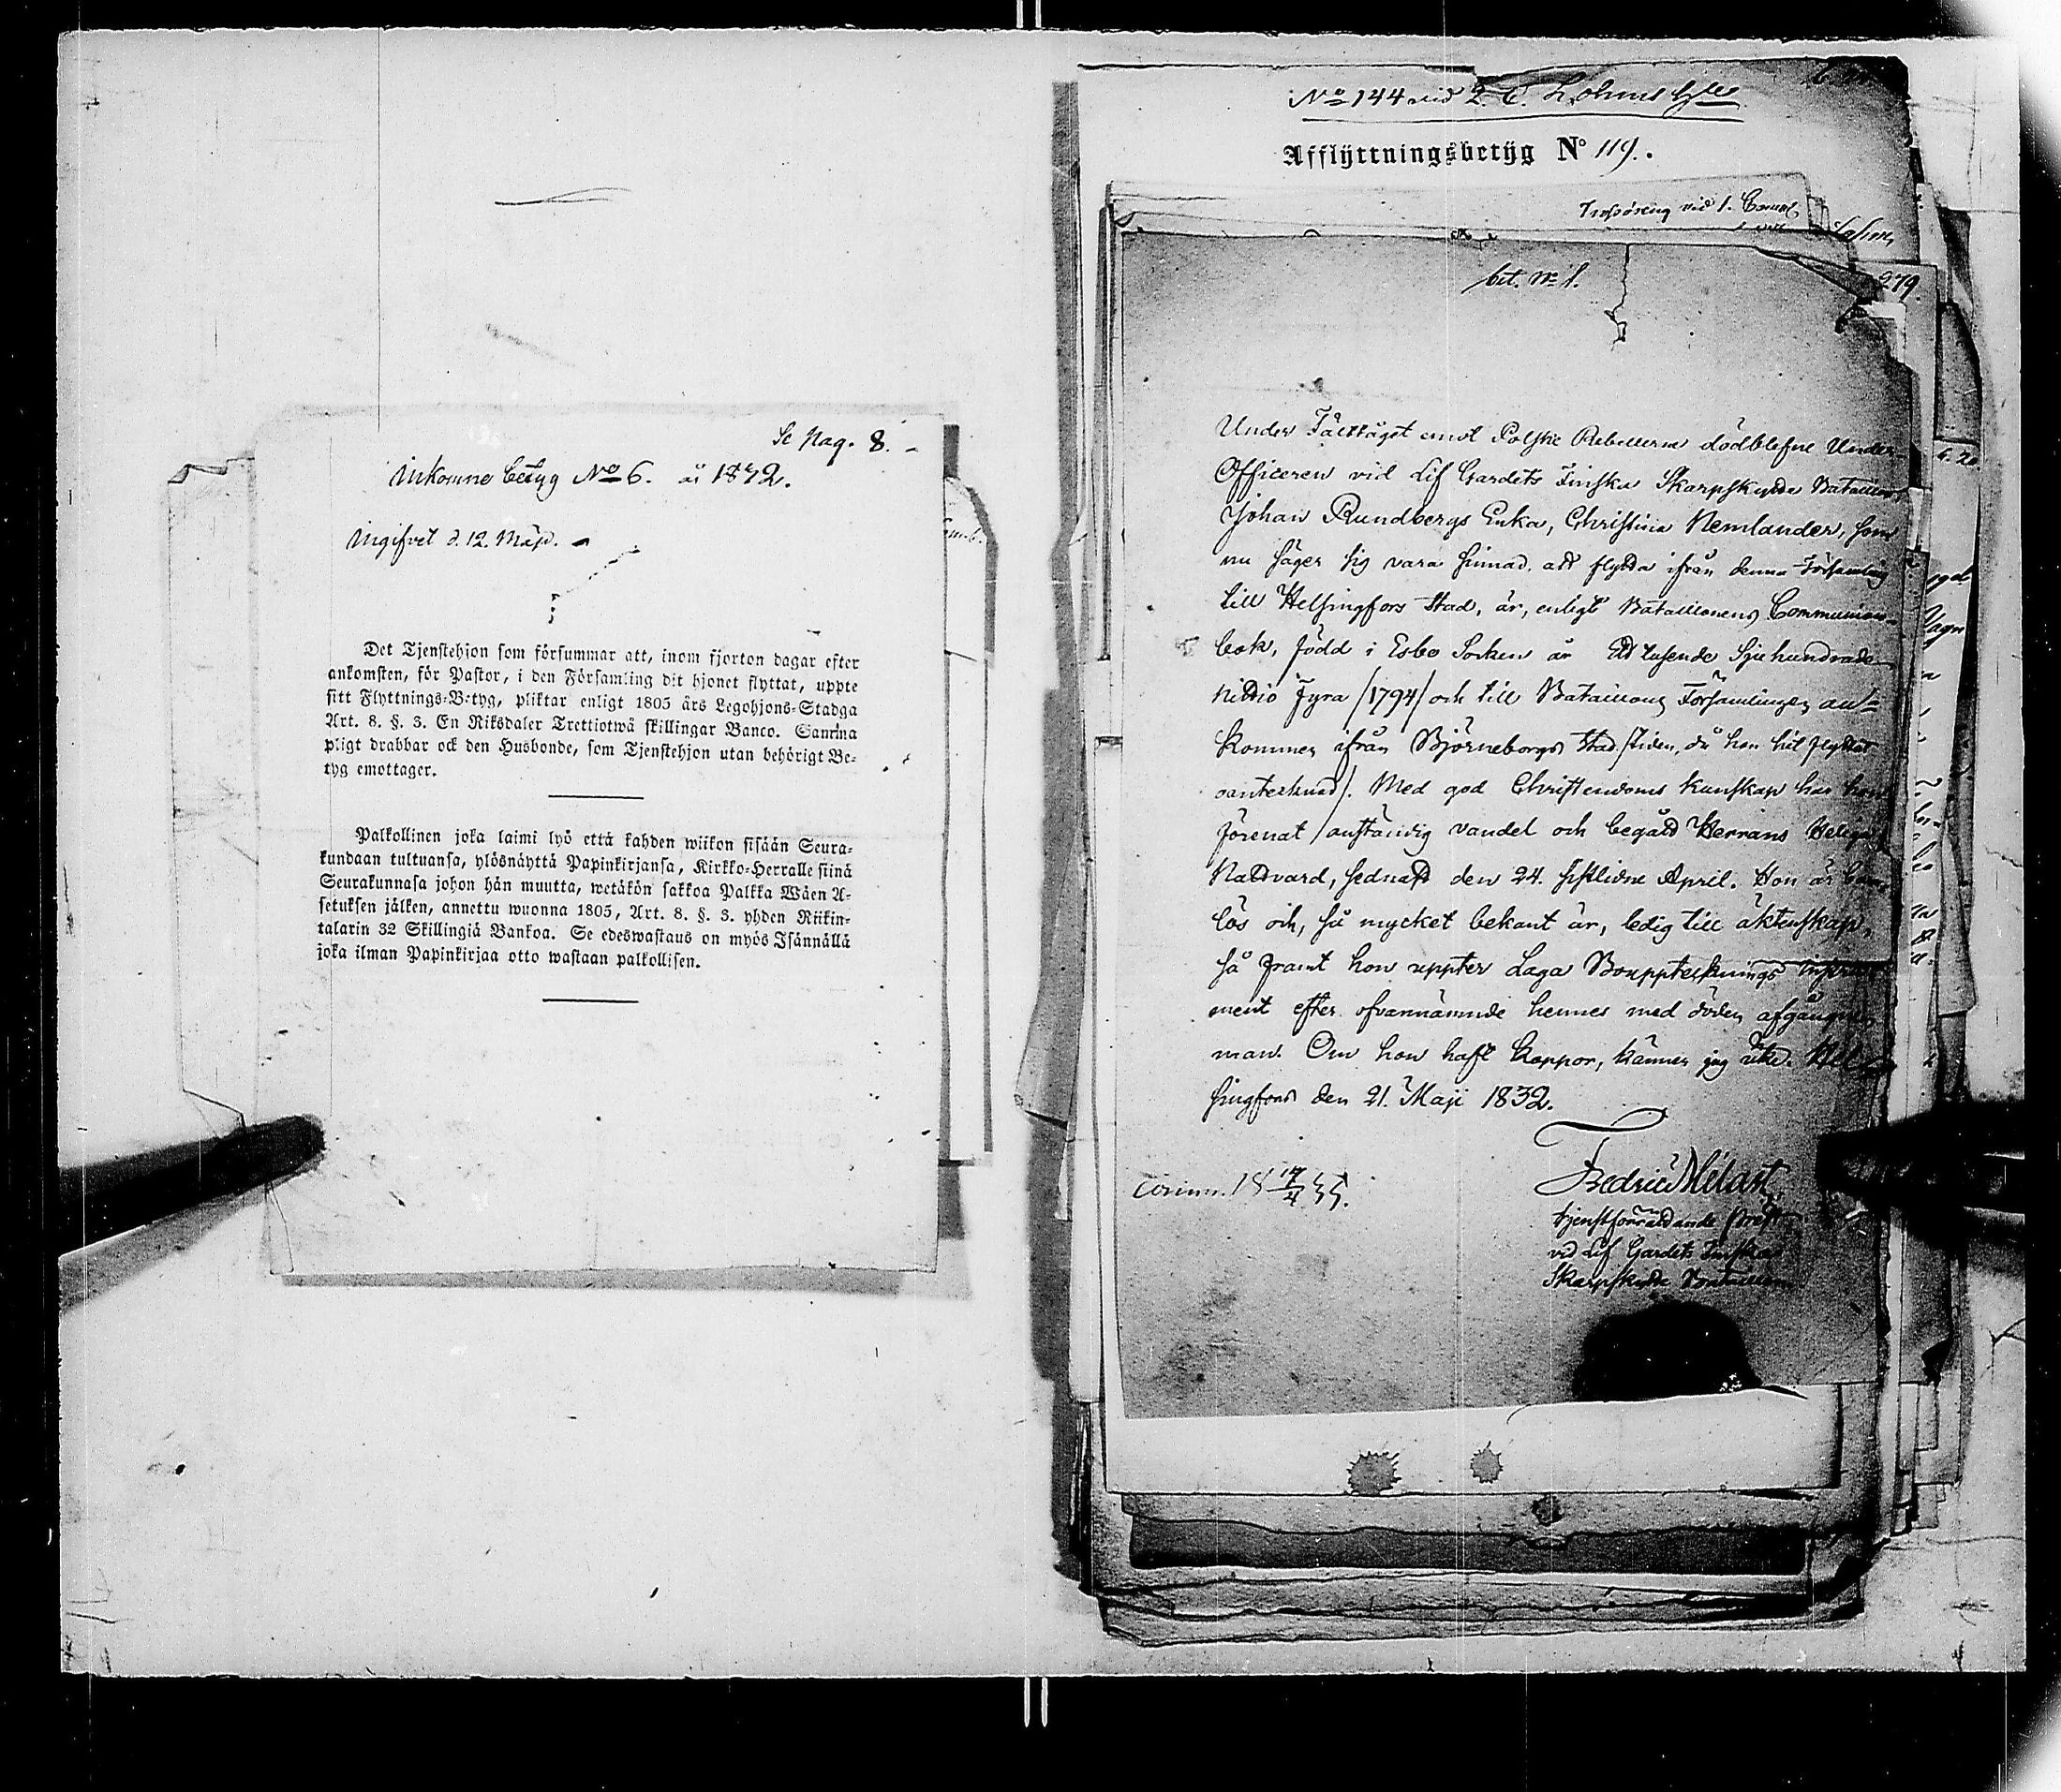 Se Pag. 8.
Inkomne betyg No 6. år 1842.
Ingifvet d. 12. Maji.
Det Tjenstehjon som försummar att, inom fjorton dagar efter
ankomsten, för Pastor, i den Församling dit hjonet flyttat, uppte
sitt Flyttnings-Betyg, pliktar enligt 1805 års Legohjons-Stadga
Art. 8. §. 3. En Riksdaler Trettiotwå skillingar Banco. Samma
pligt drabbar ock den Husbonde, som Tjenstehjon utan behörigt Be-
tyg emottager.
Palkollinen joka laimi lyö että kahden wiikon sisään Seura-
kundaan tultuansa, ylösnäyttä Papinkirjansa, Kirkko-Herralle siinä
Seurakunnasa johon hän muutta, wetäkön sakkoa Palkka Wäen A-
setuksen jälken, annettu wuonna 1805, Art. 8. §. 3. yhden Riikin-
talarin 32 Skillingiä Bankoa. Se edeswastaus on myös Isännällä
joka ilman Papinkirjaa otto wastaan palkollisen.
No 144 vid
Afflÿttningsbetÿg No 119.
vid 1.
bet. No 1.
279.
Under Fälttåget emot Polske Rebellerne dödblefne Under
Officeren vid Lif Gardets Finska Skarpskytte Bataillon
Johan Rundbergs Enka, Christina Nemlander, som
nu säger sig vara sinnad att flytta ifrån denna Församling
till Helsingfors Stad, är, enligt Bataillonens Communion-
bok, född i Esbo Socken år Ett tusende Sjuhundrade
Nittio Fyra /1794/ och till Bataillons Församlingen an-
kommen ifrån Björneborgs Stad /tiden, då hon hit flyttat
oantecknad/. Med god Christendoms kunskap har hon
förenat anständig vandel och begått Herrans Heliga
Nattvard, sednast den 24. sistlidne April. Hon är
lös och, så mycket bekant är, ledig till äktenskap,
så framt hon uppter Laga Bouppteknings Instru
ment efter ofvannämnde hennes med döden afgångne
man. Om hon haft koppor, känner jag icke. Hel
singfors den 21. Maji 1832.
Fredric
tjenstförrättande Prest
vid Lif Gardets Finska
Skarpskytte Bataillon